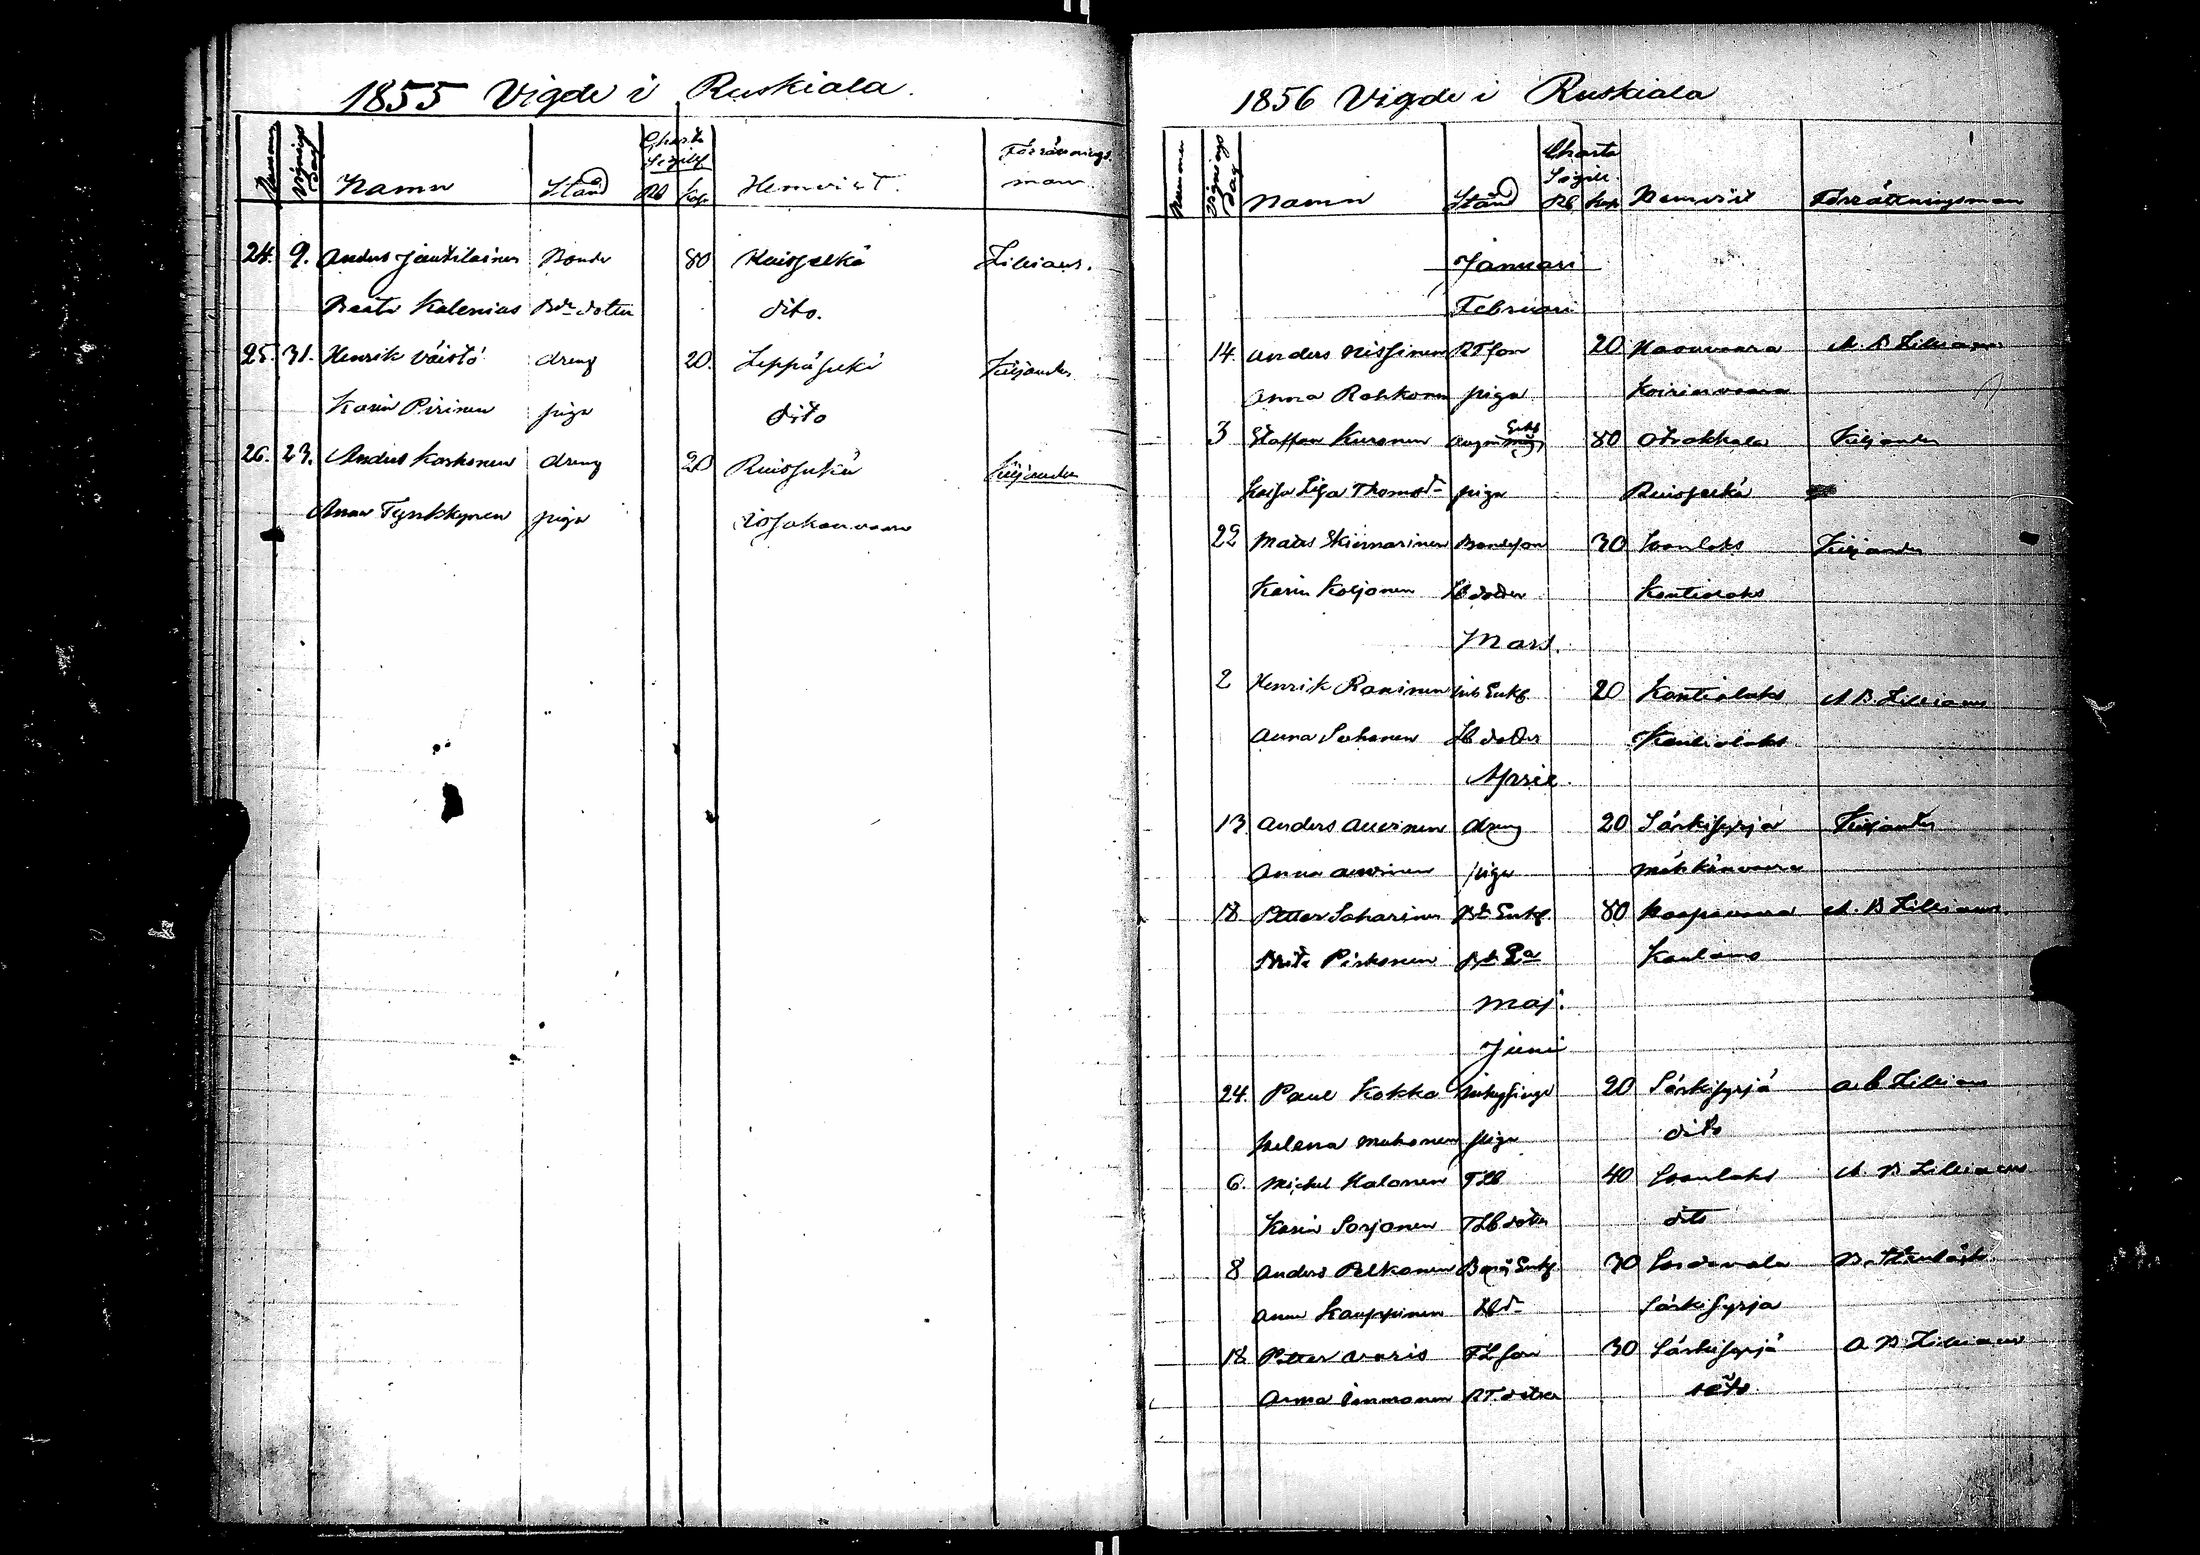 1855 Vigde i Ruskiala.
Nummer Vignings Dag Namn Stånd Charta Sigill Rb Kop Hemvist. Förrättnings man
24. 9. Anders Jantilainen Bonde 80 Ruisselkä Lilius.
Beata Kalenius Bde dotter dito.
25. 31. Henrik Väistö dreng 20. Leppäselkä Kiljander
Karin Pirinen piga dito
26. 23. Anders Korhonen dreng 20 Ruisselkä Kiljander
Anna Tynkkynen piga
1856 Vigde i Ruskiala
Nummer Vignings Dag Namn Stånd Charta Sigill. Rb Kop Hemvist Förrättningsman
Januari
Februari
14. Anders Nissinen RT son 20 Haonvaara A. B Lilius
Anna Rahkonen piga Koirinvaara
3 Staffan Kuronen Enkl 80 Otrakkala Kiljander
Kaisa Lisa Thomasd- piga Ruisselkä
22 Mats Skiemarinen Bondeson 30 Soanlaks Kiljander
Karin Koljonen Lb dotter Kontiolaks
Mars.
2 Henrik Raninen Enkl. 20 Kontiolaks A B Lilius
Anna Sohonen Lb dotter Kontiolaks
April.
13 Anders Auvinen dreng 20 Särkisyrjä Kiljander
Anna Auvinen piga Mähkänvaara
18 Petter Saharinen Bd Enkl. 80 Haapavaara A. B Lilius.
Brita Pirhonen Bd Ea Kaulamo
Maj.
Juni
24. Paul Kokko Inhysinge 20 Särkisyrjä A. B Lilius
Helena Muhonen piga dito
6. Michel Halonen TLb 40 Soanlaks A. B Lilius
Karin Sorjonen TLb dotter dito
8 Anders Pelkonen Enkl. 30 Sordavala
Anna Kauppinen Lbd- Särkisyrja
18 Petter Varis TL son 30 Särkisyrjä A. B Lilius
Anna Immonen RT dotter dito